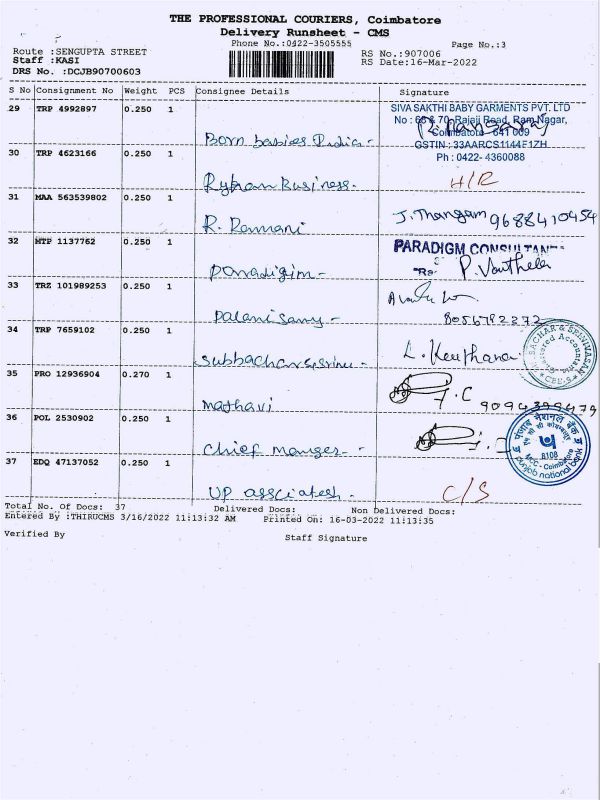 THE PROFESSIONAL COURIERS, Coimbatore
Delivery Runsheet - CMS
Phone No.:0422-3505555 Page No.:3
Route :SENGUPTA STREET RS No.:907006
Staff :KASI RS Date:16-Mar-2022
DRS No. :DCJB90700603
S No Consignment No Weight PCS Consignee Details Signature
29 TRP 4992897 0.250 1 SIVA SAKTHI BABY GARMENTS PVT. LTD
No : 68 & 70, Rajaji Road, Ram Nagar,
Coimbatore - 641 009
Born babies India - GSTIN : 33AARCS1144F1ZH
Ph : 0422- 4360088
30 TRP 4623166 0.250 1
Business. H/R
31 MAA 563539802 0.250 1
R. Ramani J. Thangam 9688410454
32 HTP 1137762 0.250 1 PARADIGM CONSULTANT
Paradigim - P. Vanthela
33 TRZ 101989253 0.250 1
Palanisamy - 8056782372
34 TRP 7659102 0.250 1 SACHAR & SRINIVASAN
Chartered Accountants
CBE
Subbachar & srinu - L. Keerthana
35 PRO 12936904 0.270 1
Mathavi F.C 9094399479
36 POL 2530902 0.250 1 पंजाब नैशनल बैंक
8108
MCC - Coimbatore
punjab national bank
Chief Manager -
37 EDQ 47137052 0.250 1
UP assciatesh - C/S
Total No. Of Docs: 37 Delivered Docs: Non Delivered Docs:
Entered By :THIRUCMS 3/16/2022 11:13:32 AM Printed On: 16-03-2022 11:13:35
Verified By Staff Signature